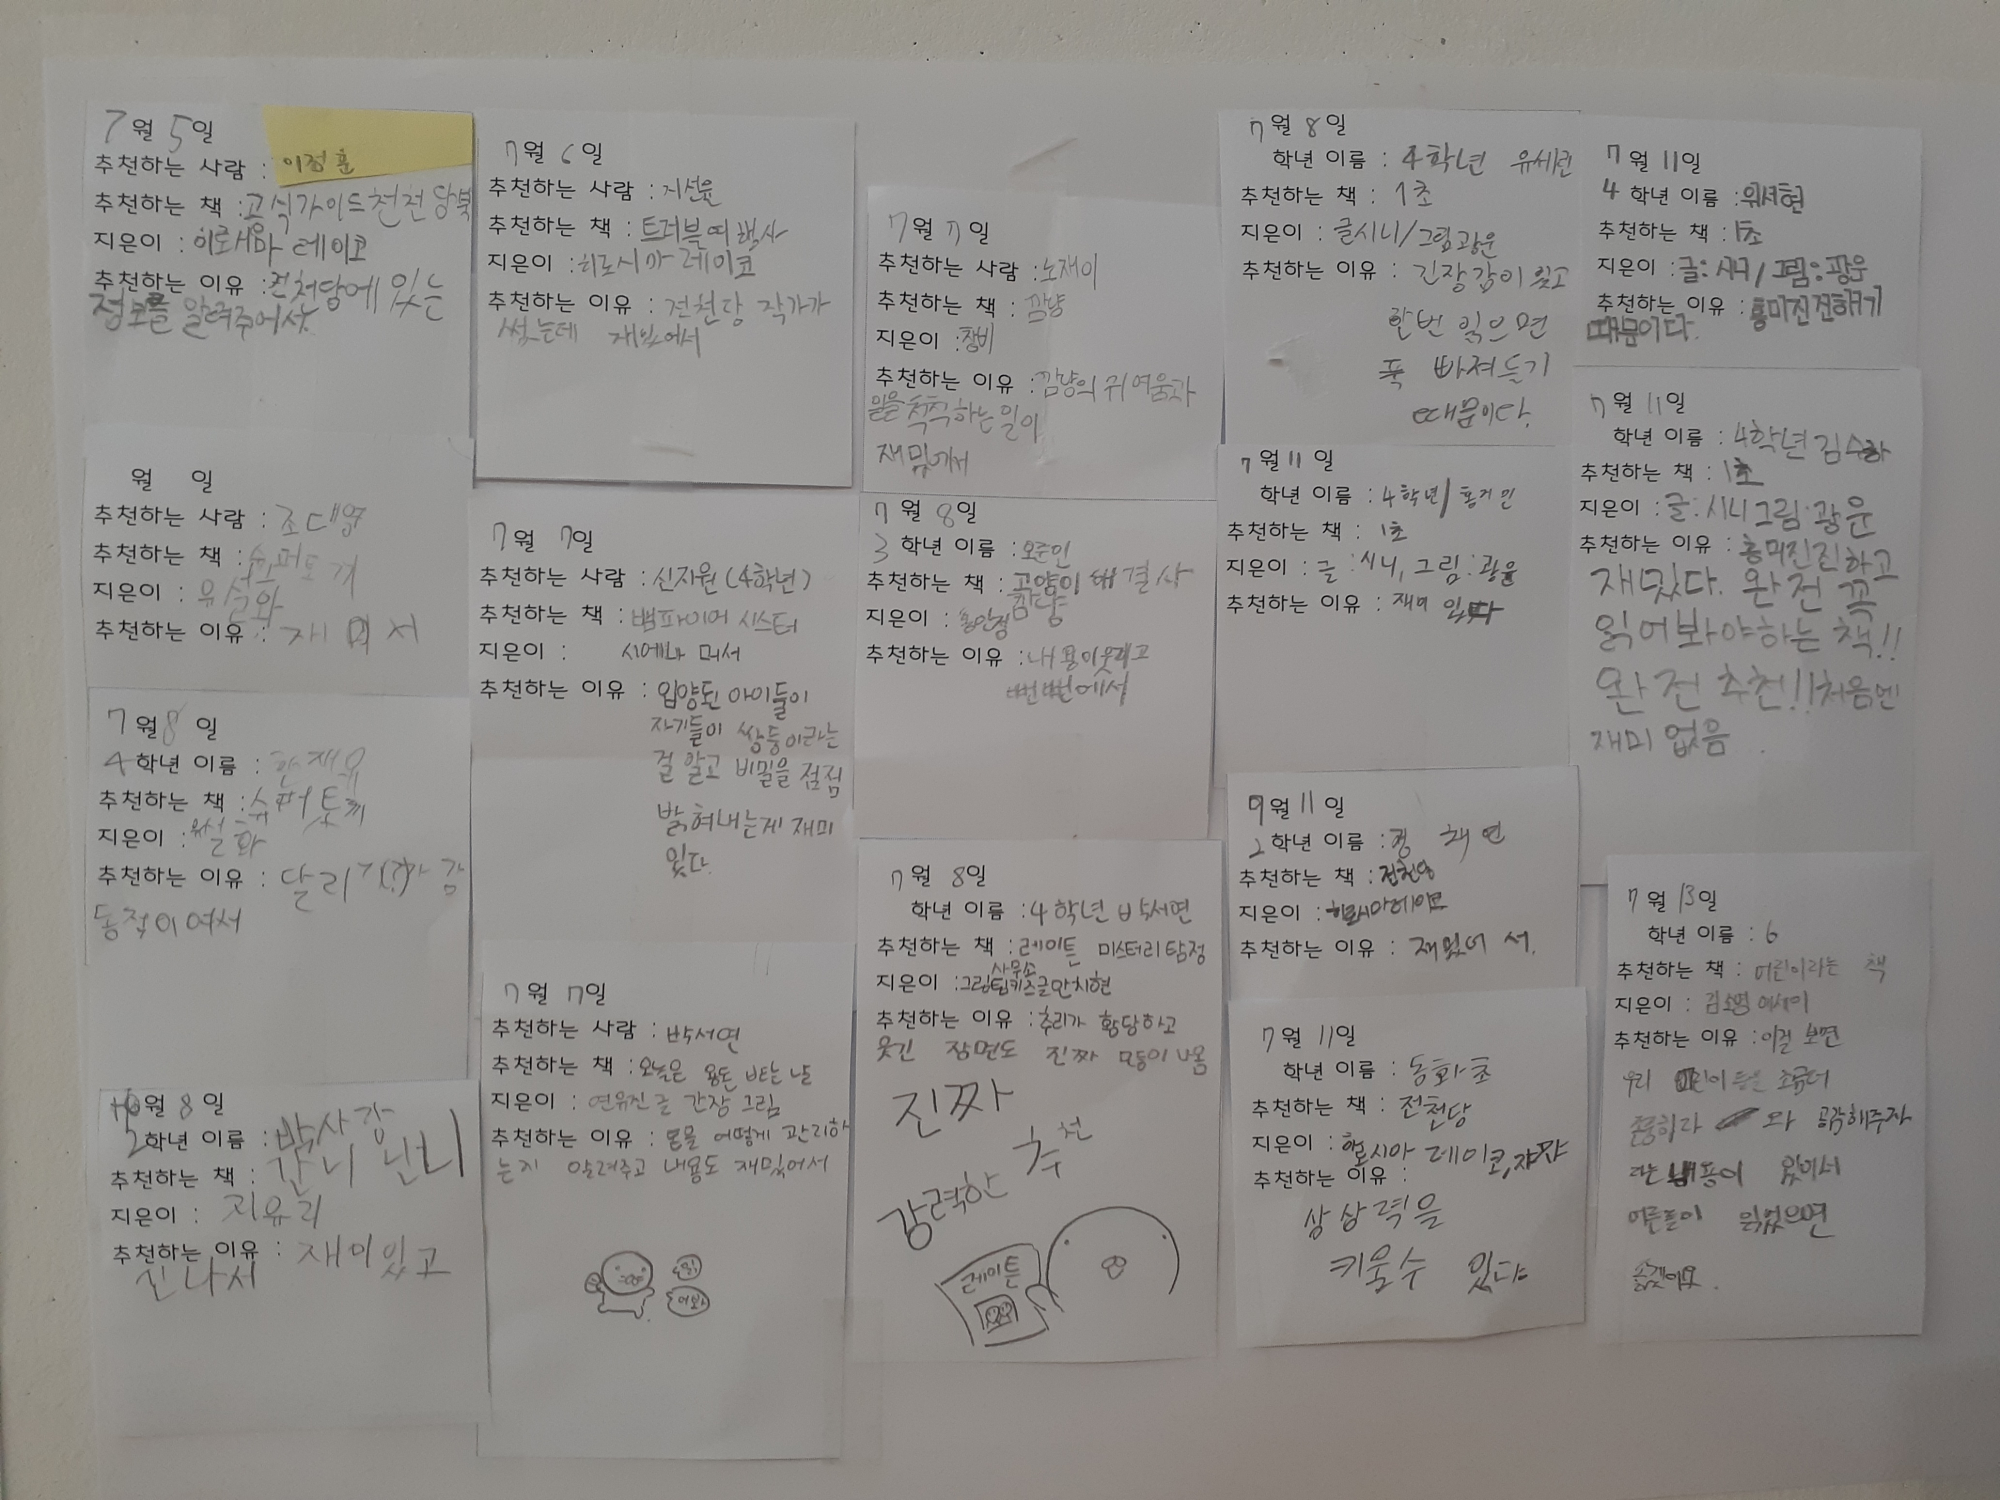 7월 5일
추천하는 사람 : 이정훈
추천하는 책 : 공식가이드전천당북
지은이 : 히로시마 레이코
추천하는 이유 : 전천당에 있는
정보를 알려주어서
월 일
추천하는 사람 : 조대영
추천하는 책 : 슈퍼토끼
지은이 : 유설화
추천하는 이유 : 재미서
7월 8일
4학년 이름 : 한재유
추천하는 책 : 슈퍼 토끼
지은이 : 유설화
추천하는 이유 : 달리기(?)가 감
동적이여서
월 8 일
2학년 이름 :
추천하는 책 :
지은이 :
추천하는 이유 : 재미있고
신나서
7월 6일
추천하는 사람 : 지선율
추천하는 책 : 트러블 여행사
지은이 : 히로시마 레이코
추천하는 이유 : 전천당 작가가
썼는데 재밌어서
7월 7일
추천하는 사람 : 신지원(4학년)
추천하는 책 : 뱀파이어 시스터
지은이 : 시에나 머서
추천하는 이유 : 입양된 아이들이
자기들이 쌍둥이라는
걸 알고 비밀을 점점
밝혀내는게 재미
있다.
7월 7일
추천하는 사람 : 박서연
추천하는 책 : 오늘은 용돈 받는 날
지은이 : 연유진 글 간장 그림
추천하는 이유 : 돈을 어떻게 관리하
는지 알려주고 내용도 재밌어서
읽어봐
7월 7일
추천하는 사람 : 노재이
추천하는 책 : 깜냥
지은이 : 창비
추천하는 이유 : 깜냥의 귀여움과
일을 척척하는 일이
재밌어서
7월 8일
3학년 이름 : 오준인
추천하는 책 : 고양이 해결사
깜냥
지은이 : 홍민정
추천하는 이유 : 내용이 웃기고
뻔뻔에서
7월 8일
학년 이름 : 4학년 박서연
추천하는 책 : 레이튼 미스터리탐정
사무소
지은이 : 그림
추천하는 이유 : 추리가 황당하고
웃긴 장면도 진짜 많이 나옴
진짜
강력한 추천
레이튼
7월 8일
학년 이름 : 4학년
추천하는 책 : 1초
지은이 : 글시니/그림광운
추천하는 이유 : 긴장감이 있고
한번 읽으면
푹 빠져들기
때문이다.
7월 11일
학년 이름 : 4학년/홍거인
추천하는 책 : 1초
지은이 : 글 : 시니, 그림 : 광운
추천하는 이유 : 재미 있다
9월 11일
2학년 이름 : 정 채연
추천하는 책 : 전천당
지은이 : 히로시마레이코
추천하는 이유 : 재밌어 서.
7월 11일
학년 이름 : 동화초
추천하는 책 : 전천당
지은이 : 레이코, 쟈쟈
추천하는 이유 :
상상력을
키울수 있다
7월 11일
4 학년 이름 : 위서현
추천하는 책 : 1초
지은이 : 글 : 시니/그림 : 광운
추천하는 이유 : 흥미진진하기
때문이다.
7월 11일
학년 이름 : 4학년 김수하
추천하는 책 : 1초
지은이 : 글 : 시니 그림 : 광운
추천하는 이유 : 흥미진진하고
재밌다. 완전 꼭
읽어봐야하는 책!!
완전 추천!! 처음엔
재미 없음
7월 13일
학년 이름 : 6
추천하는 책 : 어린이라는 책
지은이 : 김소영 에세이
추천하는 이유 : 이걸 보면
우리 어린이들을 조금더
존중하라 와 공감해주자
라는 내용이 있어서
어른들이 읽었으면
좋겠어요.